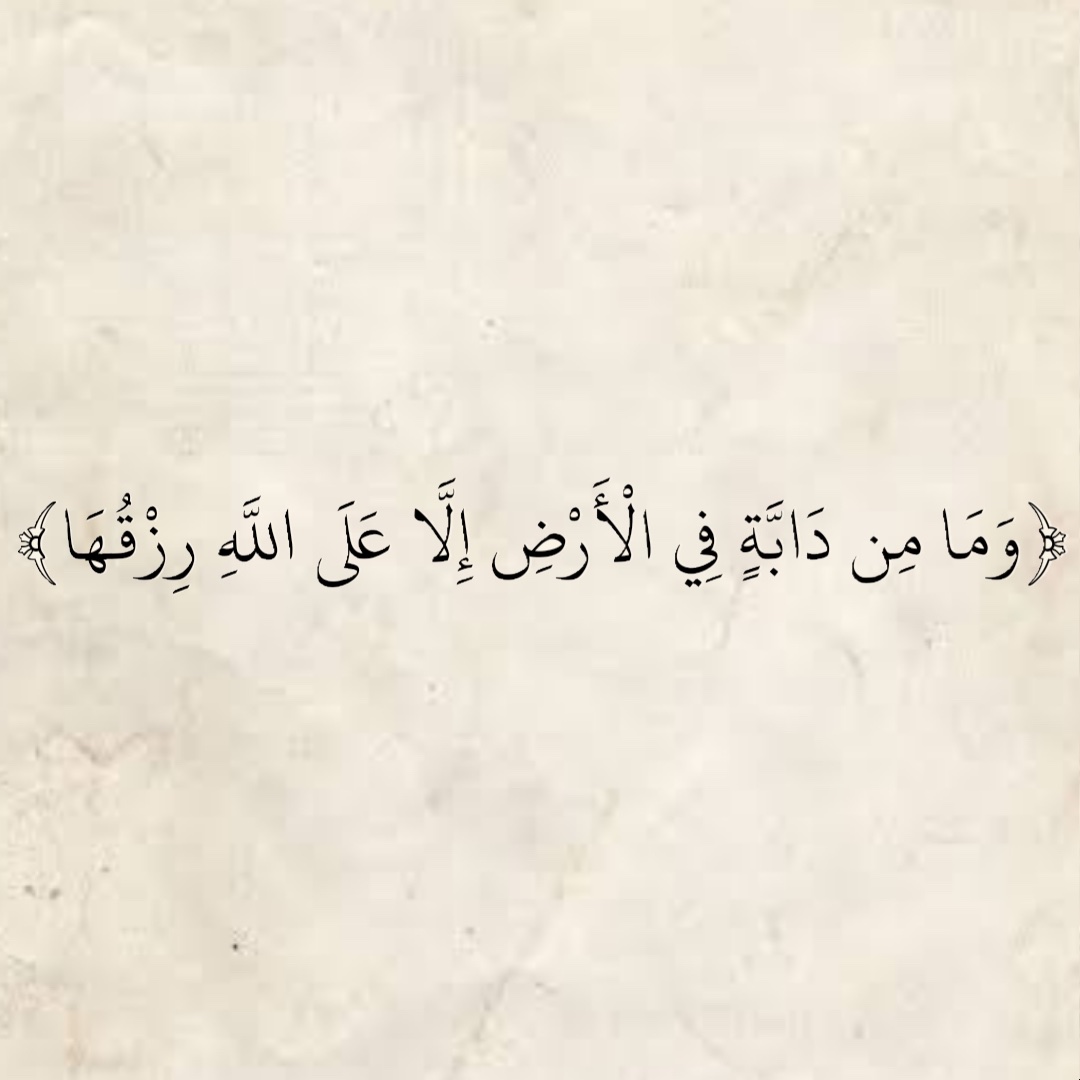 ﴿وَمَا مِن دَابَّةٍ فِي الْأَرْضِ إِلَّا عَلَى اللَّهِ رِزْقُهَا﴾